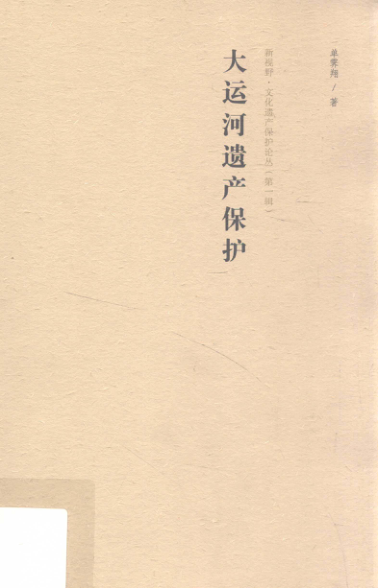 单霁翔/著
新视野·文化遗产保护论丛(第一辑)
大运河遗产保护